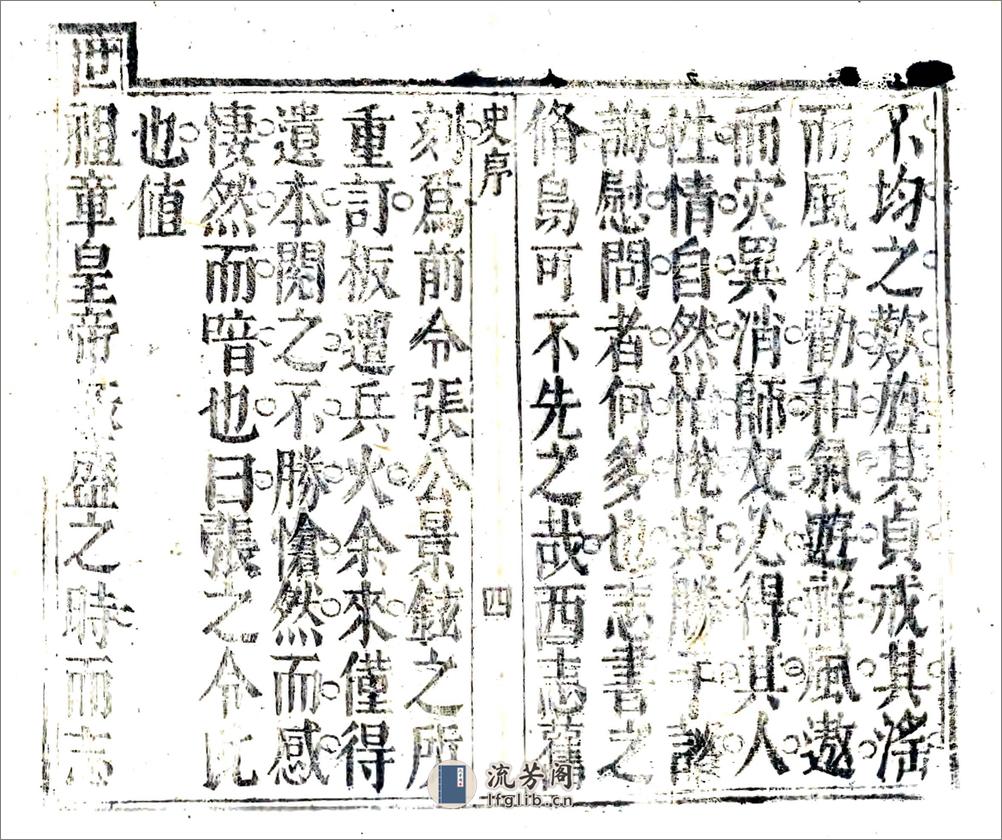 不均之歎旌其貞戒其淫
而風俗勸和氣遊祥風遨
而灾異消師文必得其人
性情自然怡悅其勝于
詢慰問者何多也志書之
脩烏可不先之哉西志舊
史序
四
刻爲前令張公景鉉之所
重訂板遭兵火余來僅得
遺本閱之不勝愴然而感
悽然而喑也曰張之令此
也值
世祖章皇帝 盛之時而志
流芳阁
lfglib.cn